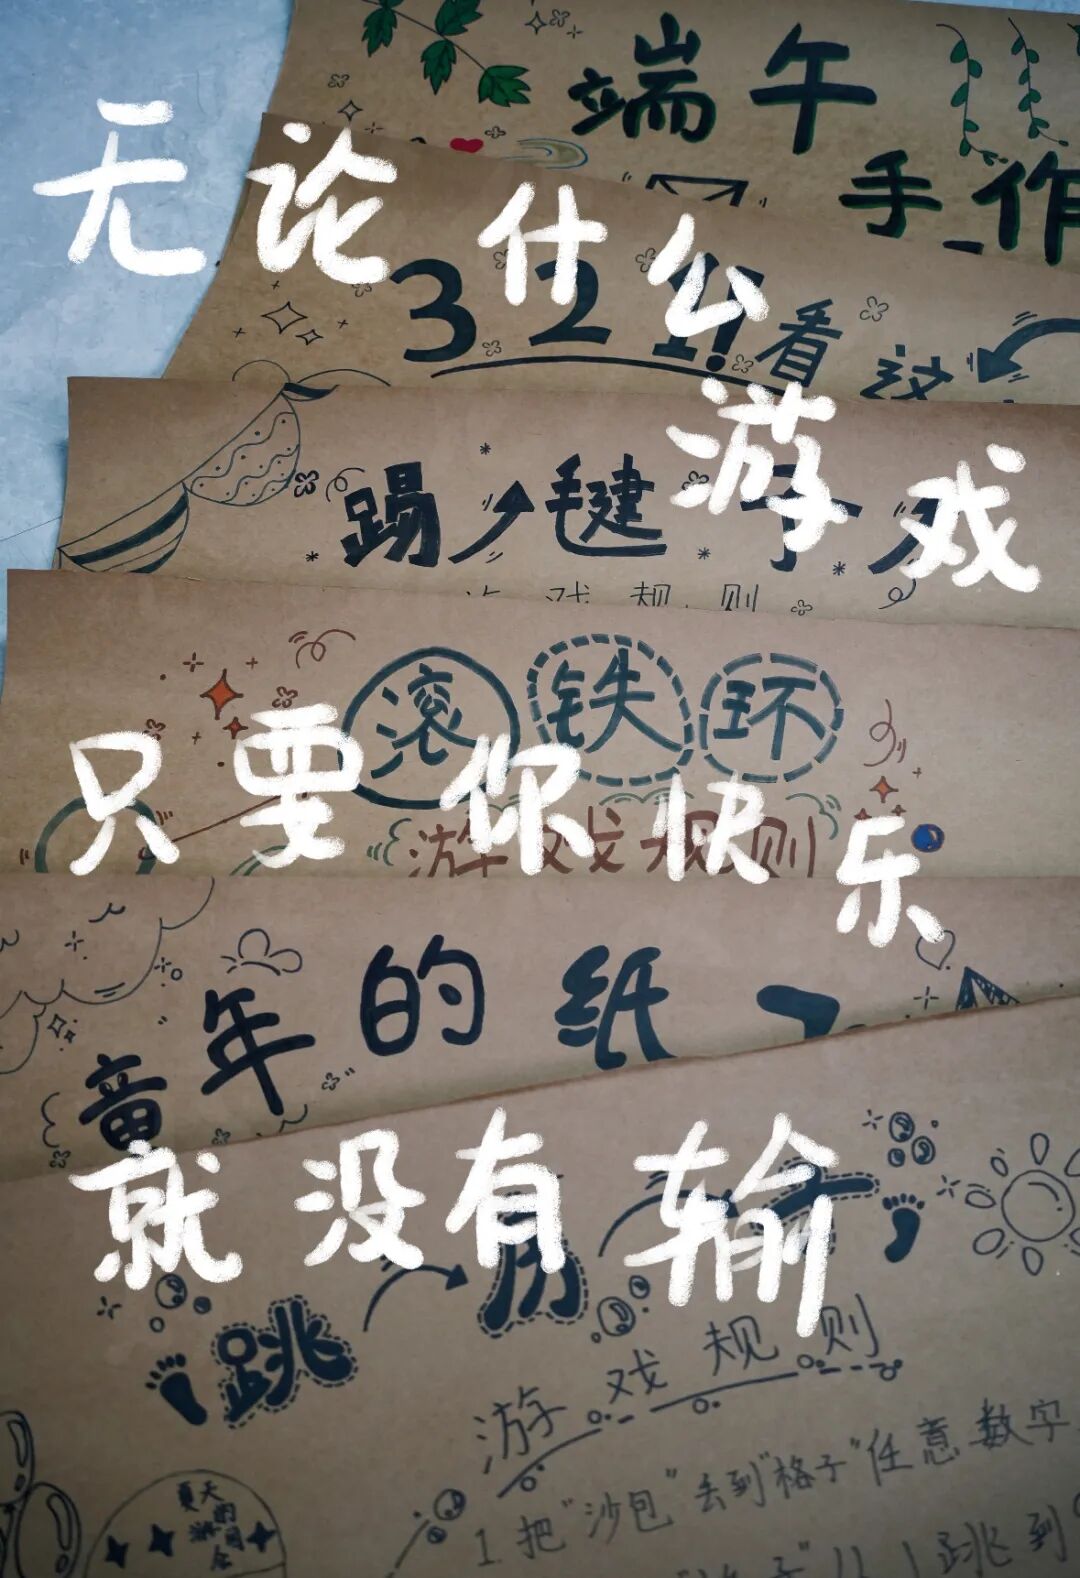 端午
手作
无论什么
321!看这
游戏
踢毽子
游戏规则
滚铁环
只要你快乐
游戏规则
童年的纸
就没有输
跳房子
游戏规则
1.把"沙包"丢到"格子"任意数字
跳到
夏天的